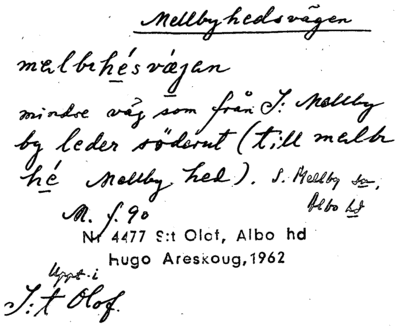 Mellbyhedsvägen
malbrhésvæjan
mindre väg som från S: Mellby
by leder söderut (till malbr
hé Mellby hed). S. Mellby sn,
Albo hd
M. f. 90
Nr 4477 S:t Olof, Albo hd
Hugo Areskoug, 1962
Uppt. i
S:t Olof.